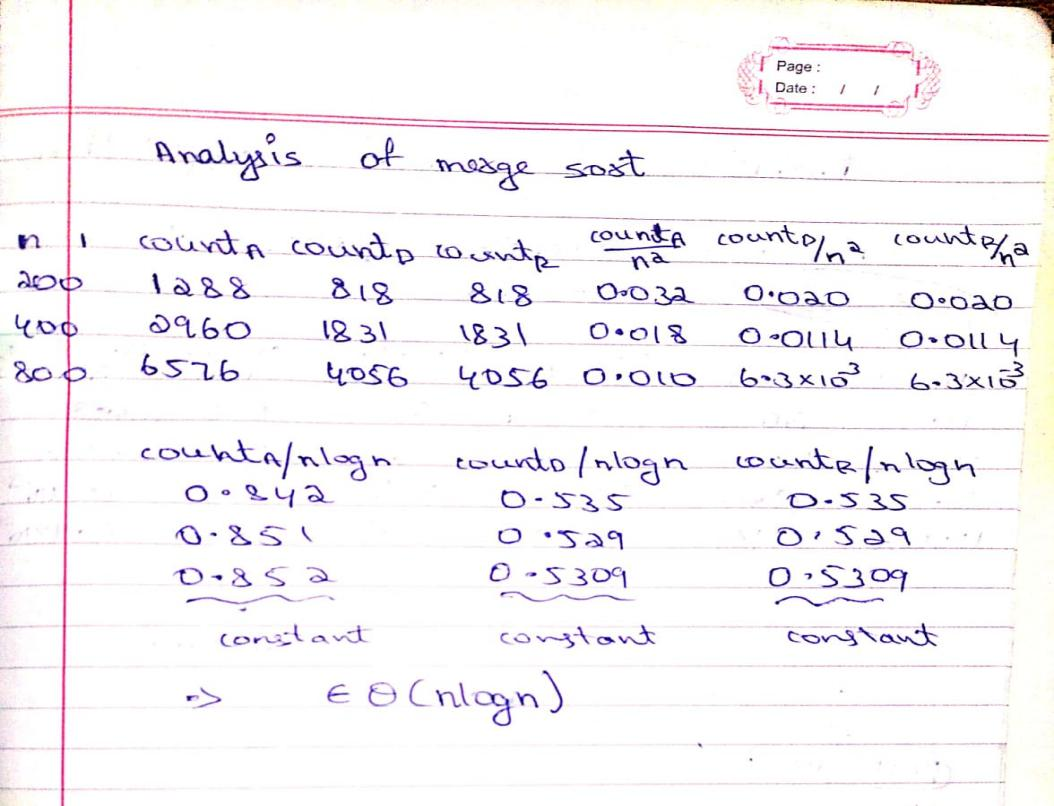 Page :
Date : / /
Analysis of merge sort
n 1 countA countD countR countA/n2 countD/n2 countR/n2
200 1288 818 818 0.032 0.020 0.020
400 2960 1831 1831 0.018 0.0114 0.0114
800 6576 4056 4056 0.010 6.3×10-3 6.3×10-3
countA/nlogn countD/nlogn countR/nlogn
0.842 0.535 0.535
0.851 0.529 0.529
0.852 0.5309 0.5309
constant constant constant
=> ∈ Θ(nlogn)